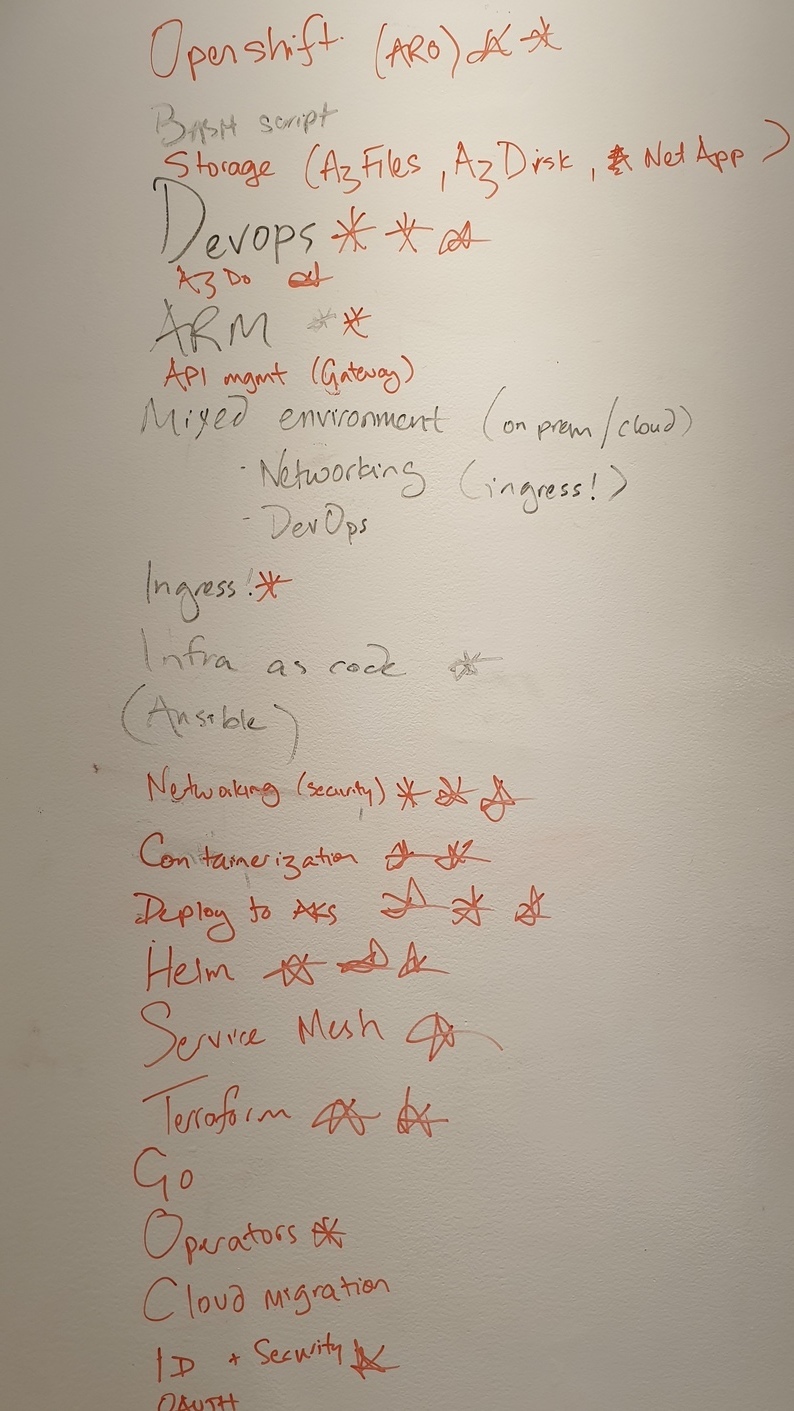 Openshift (ARO) ☆ ☆
BASH script
Storage (AzFiles, AzDisk, NetApp)
Devops * * ☆
AzDo ☆
ARM * *
API mgmt (Gateway)
Mixed environment (on prem/cloud)
· Networking (ingress!)
- DevOps
Ingress! *
Infra as code *
(Ansible)
Networking (security) * ☆ ☆
Containerization ☆ ☆
Deploy to AKS ☆ ☆ ☆
Helm ☆ ☆ ☆
Service Mesh ☆
Terraform ☆ ☆
Go
Operators ☆
Cloud migration
ID + Security ☆
OAUTH